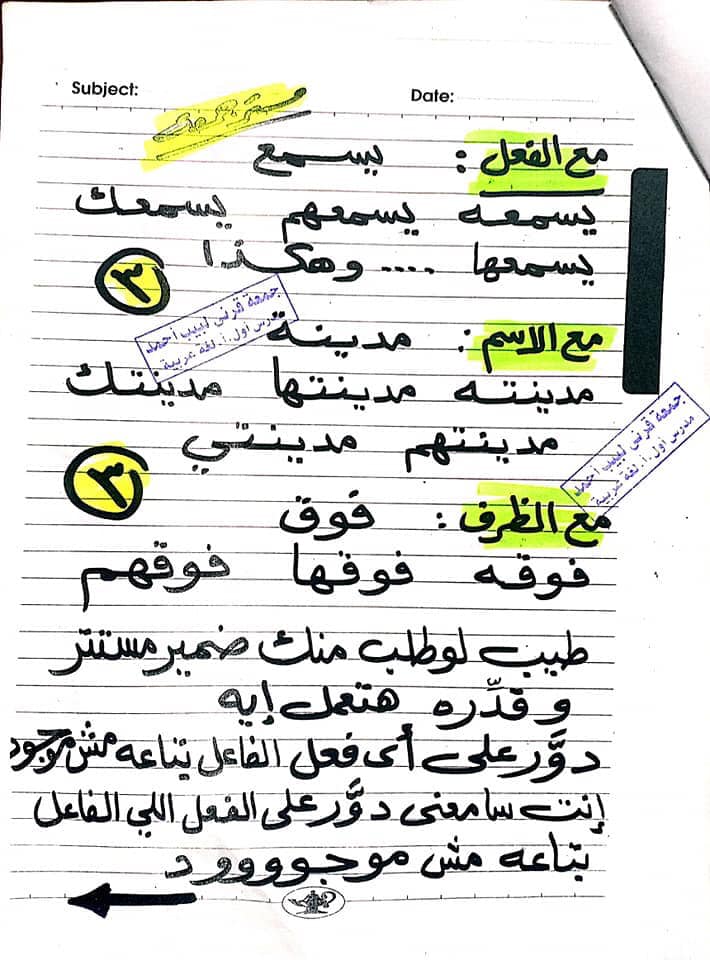 Subject:
Date:
مع الفعل : يسمع
يسمعه يسمعهم يسمعك
يسمعها .... وهكذا
٣
جمعة قرني لبيب أحمد
مدرس أول .أ. لغة عربية
مع الاسم : مدينة
مدينته مدينتها مدينتك
مدينتهم مدينتي
٣
جمعة قرني لبيب أحمد
مدرس أول .أ. لغة عربية
مع الظرف : فوق
فوقه فوقها فوقهم
طيب لو طلب منك ضمير مستتر
و قدِّره هتعمل إيه
دوَّر على أى فعل الفاعل بتاعه مش موجود
إنت سامعنى دوَّر على الفعل اللي الفاعل
بتاعه مش موجوووود